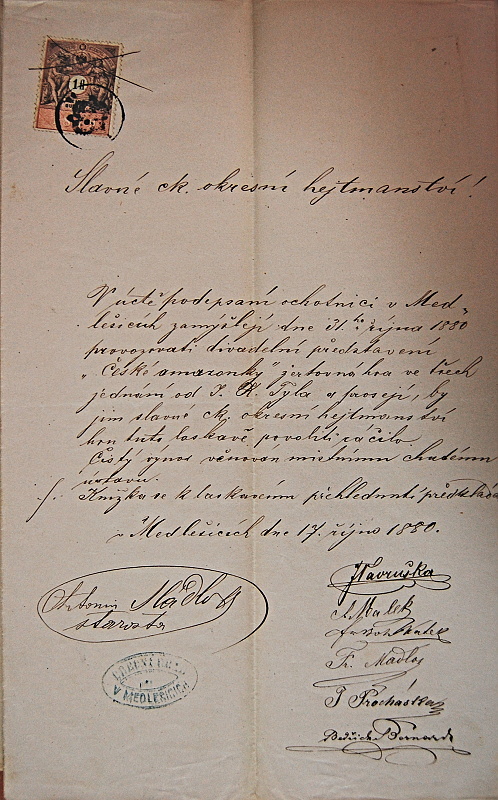 Slavné ck. okresní hejtmanství!
V úctě podepsaní ochotníci v Med-
lešicích zamýšlejí dne 31.ho října 1880
provozovati divadelní představení
„České amazonky" žertovná hra ve třech
jednání od J. K. Tyla a prosejí, by
jim slavné ck. okresní hejtmanství
hru tuto laskavě povoliti ráčilo.
Čistý výnos věnován místnímu chudému
ústavu.
Knížka se k laskavému přehlednutí předkládá
v Medlešicích dne 17. říjno 1880.
Antonín Mádlo
starosta
V MEDLEŠICÍCH
J Havruška
A. Malek
Fr. Mádlo
J Procházka
Bedřich Bernard